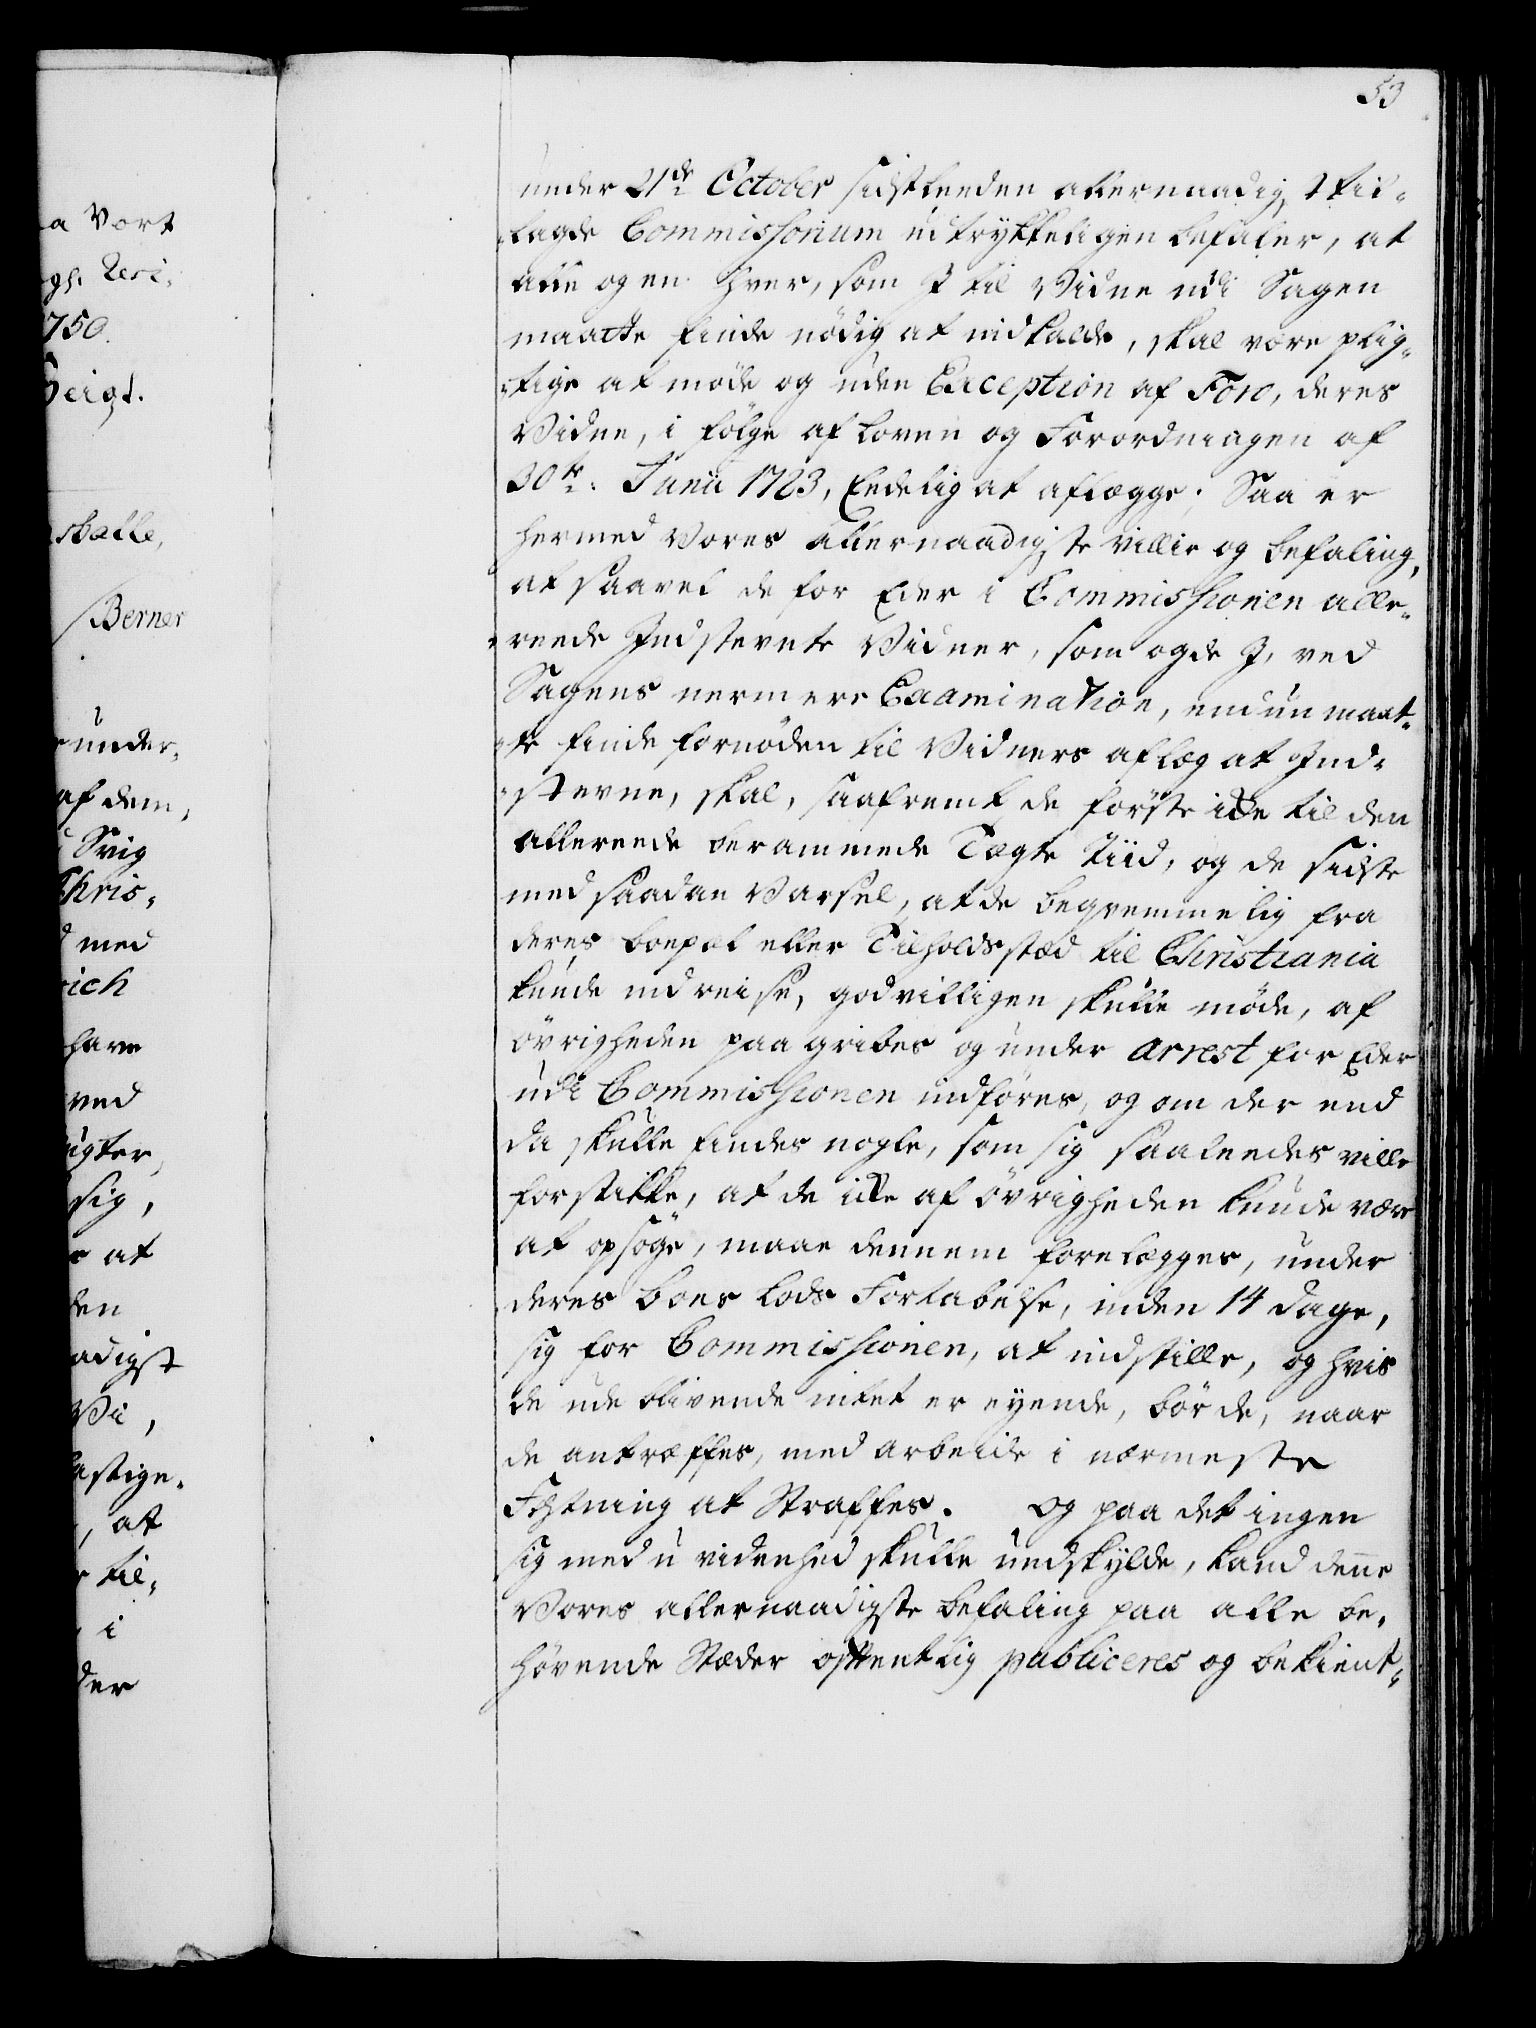 53
under 21de October sidstleeden allernaadigst til-
lagde Commissorium udtrykkeligen befaler, at
alle og en hver, som I til Vidne udi Sagen
maatte finde nödig at indkalde, skal være plig-
tige at møde og uden Exception af Foro, deres
Vidne, i følge af Loven og Forordningen af
30te Junii 1723, Eedelig at aflægge; Saa er
hermed Vores allernaadigste villie og befaling,
at saavel de for Eder i Commissionen alle-
reede Indstevnte Vidner, som og de I, ved
Sagens nermere Examination, endnu maat-
te finde fornøden til Vidners aflæg at Ind-
stevne, skal, saafremt de förste icke til den
allereede berammede Tægte Tiid, og de sidste
med saadan Varsel, at de beqvemmelig fra
deres boepæl eller Tilholdsstæd til Christiania
kunde indreise, godvilligen skulle møde, af
övrigheden paagribes og under Arrest for Eder
udi Commissionen indføres, og om der end
da skulle findes nogle, som sig saaleedes ville
forstikke, at de icke af övrigheden kunde være
at opsöge, maae dennem forelægges, under
deres boes lods Fortabelse, inden 14 dage,
sig for Commissionen, at indstille, og hvis
de udeblivende intet er eyende, bör de, naar
de antræffes, med arbeide i nærmeste
Fæstning at Straffes. Og paa det ingen
sig med uvidenhed skulle undskylde, kand deñe
Vores allernaadigste befaling paa alle be-
høvende Stæder offentlig publiceres og bekient-
a Vort
1750.
Berner
under-
af dem,
Svig
Chris-
med
rich
have
ved
sig,
at
den
Vii,
, at
til-
i
der